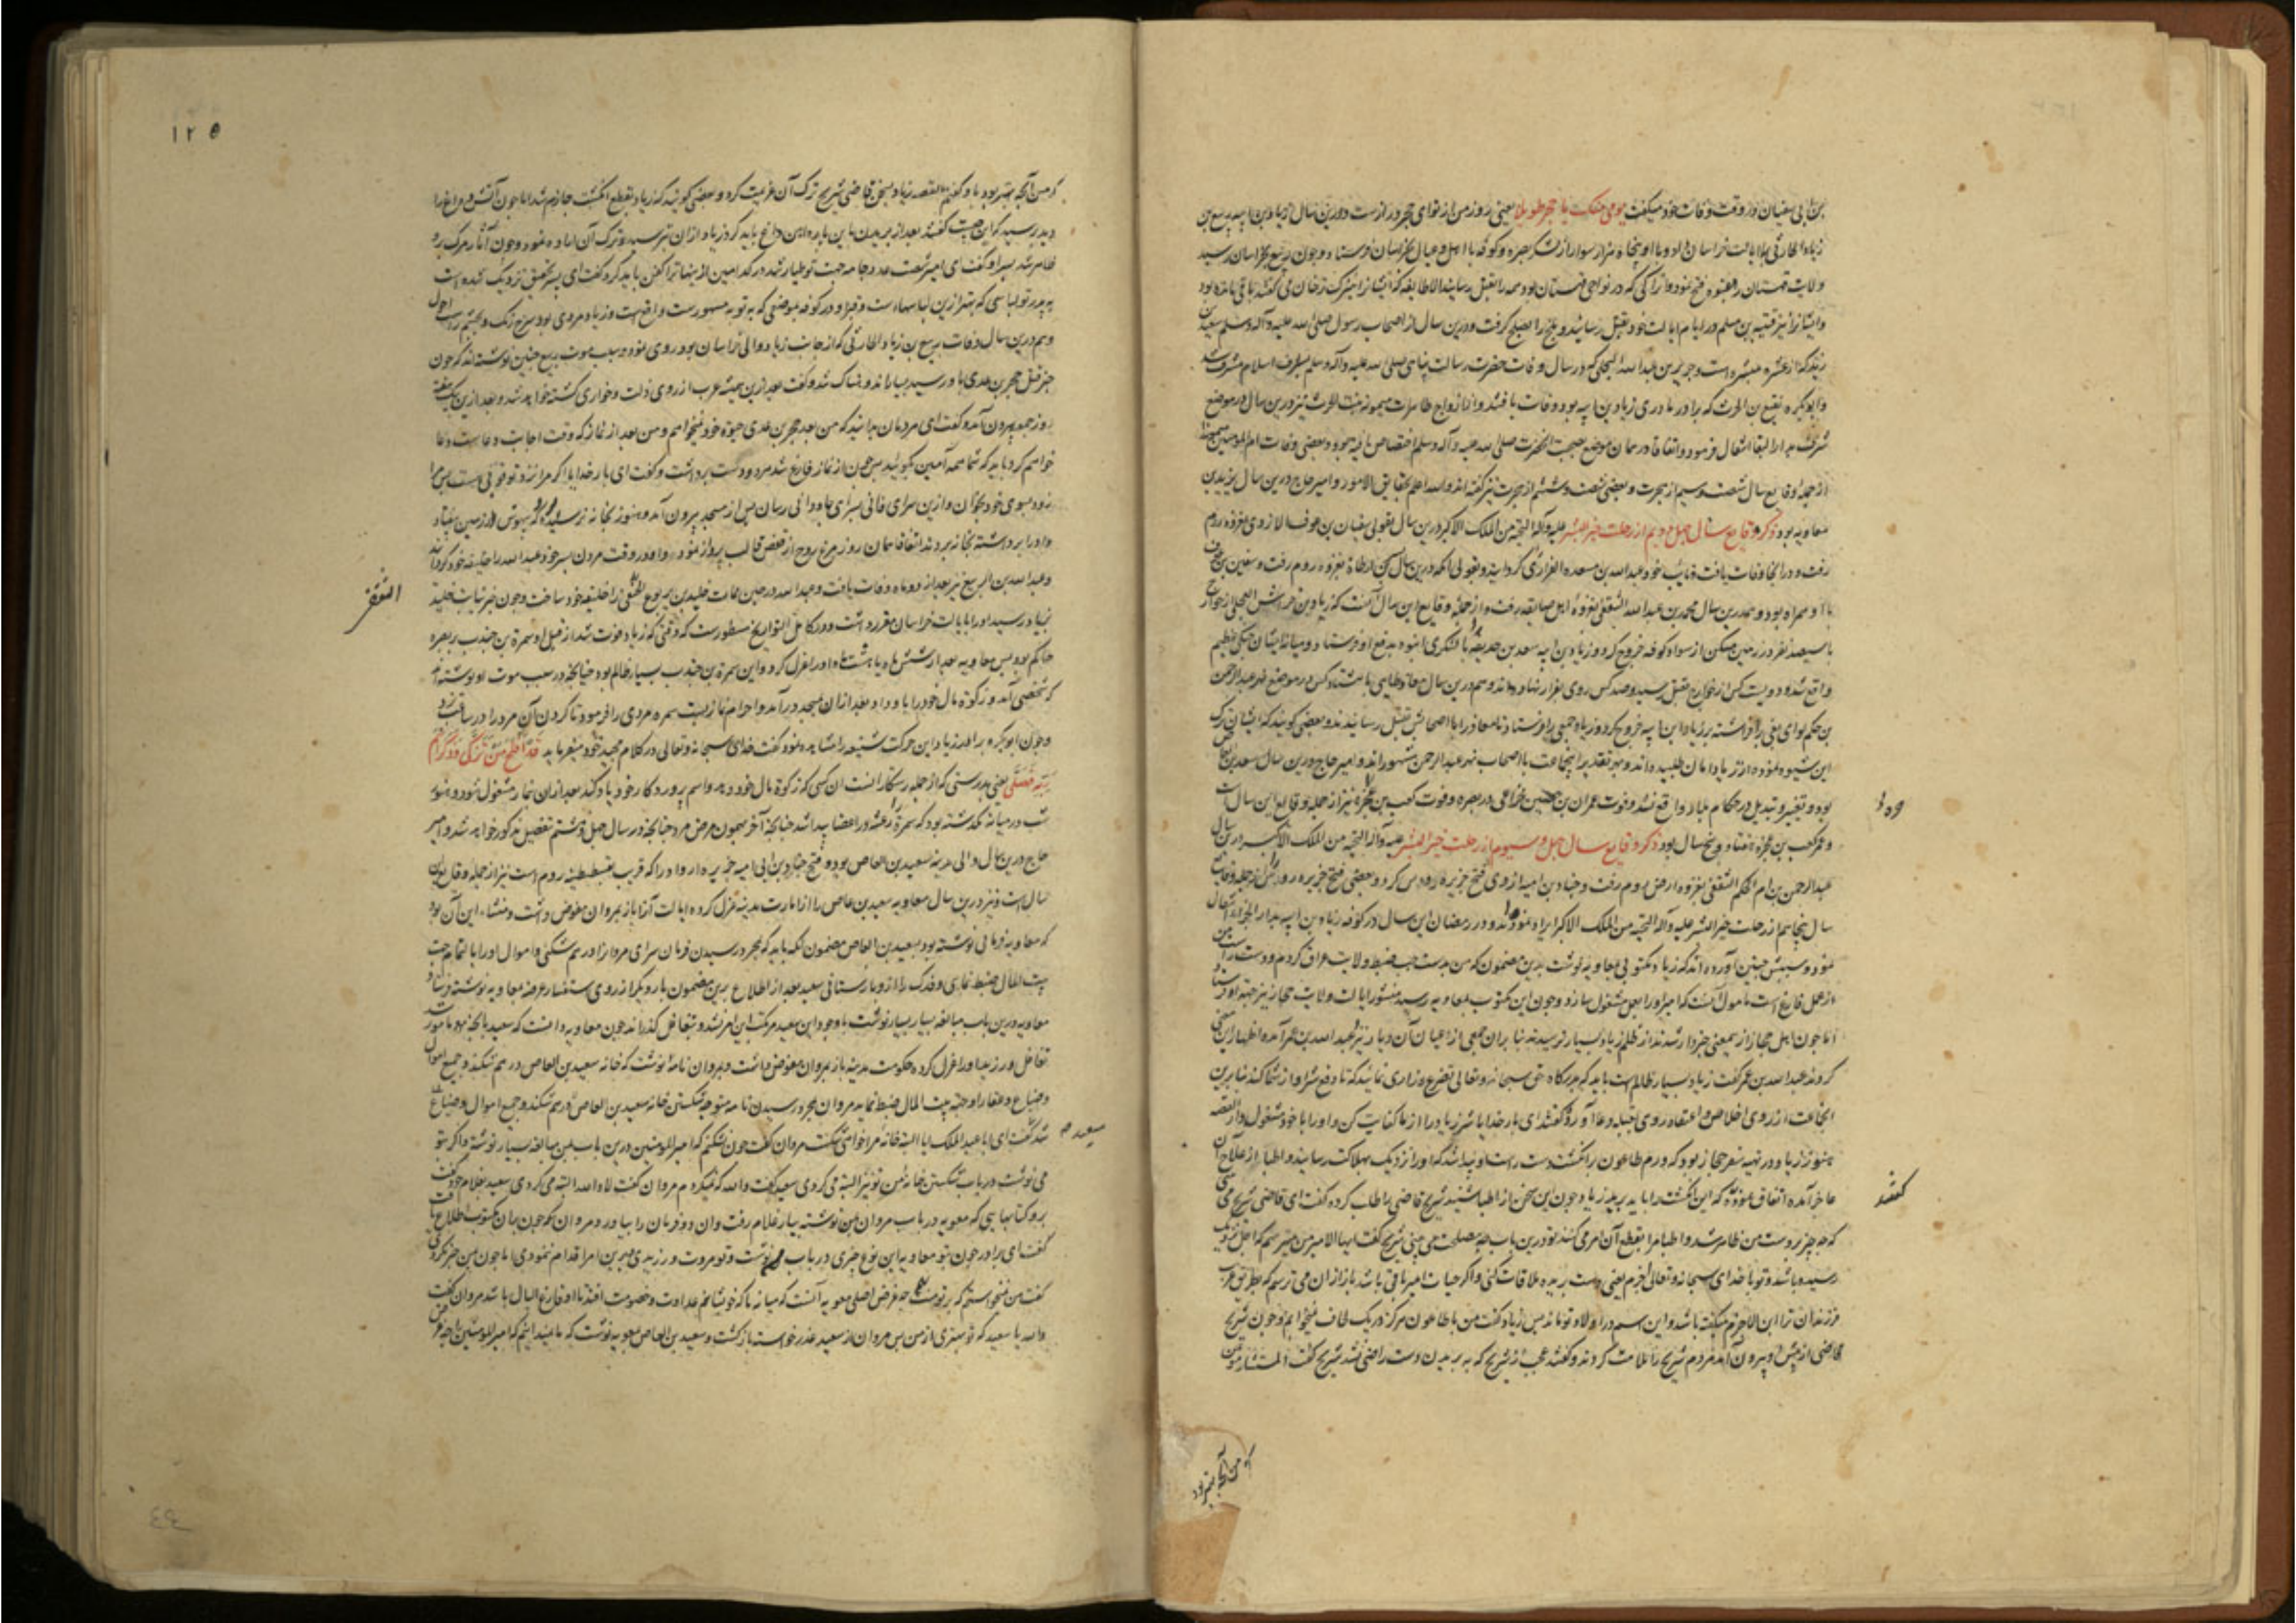 بن ابی سفیان در وقت وفات خود میگفت یومی منک یا حجر طویلا یعنی روز من از تو ای حجر دراز است و درین سال زیاد بن ابیه ربیع بن
زیاد الحارثی را بایالت خراسان فرستاد و با او پنجاه هزار سوار از لشکر بصره و کوفه با اهل و عیال بخراسان فرستاد و چون ربیع بخراسان رسید
ولایت قهستان را بعنوه فتح نمود و اتراکی که در نواحی قهستان بود همه را بقتل رسانید الا طایفه که ایشانرا نیزک ترخان می گفتند باقی مانده بود
و ایشانرا نیز قتیبه بن مسلم در ایام ایالت خود بقتل رسانید و بلخ را بصلح گرفت و درین سال از اصحاب رسول صلی الله علیه و آله و سلم سعید بن
زید که از عشره مبشره است و جریر بن عبد الله البجلی که در سال وفات حضرت رسالت پناهی صلی الله علیه و آله و سلم بشرف اسلام مشرف شد
و ابو بکره نفیع بن الحرث که برادر مادری زیاد بن ابیه بود وفات یافتند و از ازواج طاهرات میمونه بنت الحرث نیز درین سال در موضع
سرف بدار البقا انتقال فرمود و اتفاقا در همان موضع بصحبت آنحضرت صلی الله علیه و آله و سلم اختصاص یافته بود و بعضی وفات ام المومنین میمونه را
از جمله وقایع سال شصت و سیم از هجرت و بعضی شصت و ششم از هجرت نیز گفته اند والله اعلم بحقایق الامور و امیر حاج درین سال یزید بن
معاویه بود ذکر وقایع سال چهل و دیم از رحلت خیر البشر علیه و آله التحیه من الملک الاکبر درین سال بقولی سفیان بن عوف الازدی بغزوه روم
رفت و در آنجا وفات یافت و نایب خود عبد الله بن مسعده الفزاری گردانید و بقولی آنکه درین سال بسر بن ارطاة بغزوه روم رفت و سفین بن عوف
با او همراه بود و همدرین سال محمد بن عبد الله الثقفی بغزوه اهل صایفه رفت و از جمله وقایع این سال آنست که زیاد بن خراش العجلی از خوارج
با سیصد نفر در زمین مسکن از سواد کوفه خروج کرد و زیاد بن ابیه سعد بن حذیفه را با لشکری انبوه بدفع او فرستاد و میانه ایشان جنگی عظیم
واقع شد و دویست کس از خوارج بقتل رسید و صد کس روی بفرار نهاده اند و هم درین سال معاذ طایی با هشتاد کس در موضع نهر عبد الرحمن
بن حکم لوای بغی برافراشته بر زیاد بن ابیه خروج کرد و زیاد جمعی را فرستاد تا معاذ را با اصحابش بقتل رسانیدند و بعضی گویند که ایشان ترک
این شیوه نموده از زیاد امان طلبیده اند و بهر تقدیر اینجماعت باصحاب نهر عبد الرحمن مشهوراند و امیر حاج درین سال سعید بن العاص
بود و تغییر و تبدیل در حکام بلاد واقع نشد و فوت عمران بن حصین خزاعی در بصره و فوت کعب بن عجزه نیز از جمله وقایع این سال است
و عمر کعب بن عجزه هفتاد و پنج سال بود ذکر وقایع سال چهل و سیوم از رحلت خیر البشر علیه و آله التحیه من الملک الاکبر درین سال
عبد الرحمن بن ام الحکم الثقفی بغزوه ارض روم رفت و جناده بن امیه ازدی فتح جزیره رودس کرد و بعضی فتح جزیره رودس را از جمله وقایع
سال پنجاهم از رحلت خیر البشر علیه و آله التحیه من الملک الاکبر ایراد نموده اند و در رمضان این سال در کوفه زیاد بن ابیه بدار الجزا انتقال
نمود و سببش چنین آورده اند که زیاد مکتوبی بمعاویه نوشت بدین مضمون که من بدست چپ ضبط ولایت عراق کردم و دست راست من
از عمل فارغ است مامول آنست که امیر او را بعمل مشغول سازد و چون این مکتوب بمعاویه رسید منشور ایالت ولایت حجاز نیز جهة او فرستاد
اما چون اهل حجاز از ینمعنی خبردار شدند از ظلم زیاد بسیار ترسیدند بنابران جمعی از اعیان آن دیار نزد عبد الله بن عمر آمده اظهار این معنی
کردند عبد الله بن عمر گفت زیاد بسیار ظالم است باید که بدرگاه حق سبحانه و تعالی تضرع و زاری نمائید که تا دفع شر او از شما کند بنابرین
اینجماعت از روی اخلاص و اعتقاد روی بقبله دعا آورده گفتند ای بار خدایا شر زیاد را از ما کفایت کن و او را باخود مشغول دار القصه
هنوز زیاد در تهیه سفر حجاز بود که ورم طاعون بر انگشت دست راست او پیدا شد که او را نزدیک بهلاکت رسانید و اطبا از علاج آن
عاجز آمده اتفاق نمودند که این انگشت را باید برید زیاد چون این سخن از اطبا شنید شریح قاضی را طلب کرده گفت ای قاضی شریح می بینی
که چه چیز بر دست من ظاهر شد و اطبا مرا بقطع آن امر می کنند تو درین باب چه مصلحت می بینی شریح گفت ایها الامیر من میترسم که اجل نزدیک
رسیده باشد و تو با خدای سبحانه و تعالی اجذم یعنی دست بریده ملاقات کنی و اگر حیات امیر باقی باشد باز ازان می ترسم که بطریق عرب
فرزندان ترا ابن الاجذم میگفته باشند و این اسم در اولاد تو ماند پس زیاد گفت من با طاعون هرگز در یک لحاف نمیخوابم و چون شریح
قاضی از پیش او بیرون آمد مردم شریح را ملامت کردند و گفتند عجب از شریح که به بریدن دست راضی نشد شریح گفت المستشار موتمن
گفتند
که من آنچه بهتر بود
۱۲۵
که من آنچه بهتر بود باو گفتم القصه زیاد بسخن قاضی شریح ترک آن عزیمت کرد و بعضی گویند که زیاد بقطع انگشت جازم شد اما چون آتش و داغ را
دید پرسید که این چیست گفتند بعد از بریدن باین پاره آهن داغ باید کرد زیاد ازان ترسید و ترک آن اراده نمود و چون آثار مرگ برو
ظاهر شد پسر او گفت ای امیر شصت عدد جامه جهت تو طیار شد در کدامین ازینها ترا کفن باید کرد گفت ای پسر عنقریب نزدیک شده است
به پدر تو لباسی که بهتر ازین لباسهاست و قبر او در کوفه بموضعی که به ثویه مشهورست واقع است و زیاد مردی بود سرخ رنگ و چشم راست احول
و هم درین سال وفات ربیع بن زیاد الحارثی که از جانب زیاد والی خراسان بود روی نمود و سبب موت ربیع چنین نوشته اند که چون
خبر قتل حجر بن عدی باو رسید بسیار اندوهناک شد و گفت بعد ازین همیشه عرب از روی ذلت و خواری کشته خواهد شد و بعد ازین بیک هفته
روز جمعه بیرون آمد و گفت ای مردمان بدانید که من بعد حجر بن عدی حیوة خود نمیخواهم و من بعد از نماز که وقت اجابت دعاست دعا
خواهم کرد باید که شما همه آمین گوئید پس چون از نماز فارغ شد هر دو دست برداشت و گفت ای بار خدایا اگر مرا نزد تو توقعی هست پس مرا
زود بسوی خود بخوان و ازین سرای فانی بسرای جاودانی رسان پس از مسجد بیرون آمد و هنوز بخانه نرسیده بود که بیهوش در زمین بیفتاد
و او را برداشته بخانه بردند اتفاقا همان روز مرغ روح از قفص قالب پرواز نمود و او در وقت مردن پسر خود عبد الله را خلیفه خود گردانید
و عبد الله بن الربیع نیز بعد از دو ماه وفات یافت و عبد الله در حین ممات خلید بن یربوع الحنفی را خلیفه خود ساخت و چون خبر نیابت خلید
بزیاد رسید او را بایالت خراسان مقرر داشت و در کامل التواریخ مسطورست که وقتی که زیاد فوت شد از قبل او سمرة بن جندب بر بصره
حاکم بود پس معاویه بعد از شش ماه یا هشت ماه او را عزل کرد و این سمرة بن جندب بسیار ظالم بود چنانچه در سبب موت او نوشته اند
که شخصی آمد و زکوة مال خود را باو داد و بعد ازان بمسجد درآمد و احرام نماز بست سمره مردی را فرمود تا گردن آن مرد را در ساعت بزد
و چون ابو بکره برادر زیاد این حرکت شنیعه را مشاهده نمود گفت خدای سبحانه و تعالی در کلام مجید خود میفرماید قد افلح من تزکی و ذکر اسم
ربه فصلی یعنی بدرستی که از جمله رستگارانست آن کسی که زکوة مال خود دهد و اسم پروردگار خود یاد کند بعد ازان بنماز مشغول شود و هنوز
شب در میانه نگذشته بود که سمرة را رعشه در اعضا پیدا شد چنانچه آخر بهمون مرض مرد چنانچه در سال چهل و هشتم تفصیل مذکور خواهد شد و امیر
حاج درین سال والی مدینه سعید بن العاص بود و فتح جناده بن ابی امیه جزیره ارواد را که قریب بقسطنطنیه روم است نیز از جمله وقایع این
سال است و نیز درین سال معاویه سعید بن عاص را از امارت مدینه عزل کرده ایالت آنرا باز بمروان مفوض داشت و منشاء این آن بود
که معاویه فرمانی نوشته بود بسعید بن العاص مضمون آنکه باید که بمجرد رسیدن فرمان سرای مروان را در هم شکنی و اموال او را بالتمام جهت
بیت المال ضبط نمایی و فدک را ازو بازستانی سعید بعد از اطلاع برین مضمون بار دیگر از روی استفسار عرضه بمعاویه نوشته فرستاد
معاویه درین باب مبالغه بسیار بسیار نوشت باوجود این سعید مرتکب این امر نشد و بتغافل گذراند چون معاویه دانست که سعید بآنچه بدو مامور شد
تغافل ورزید او را عزل کرده حکومت مدینه باز بمروان مفوض داشت و بمروان نامه نوشت که خانه سعید بن العاص در هم شکند و جمیع اموال
و ضیاع و عقار او جهة بیت المال ضبط نماید مروان بمجرد رسیدن نامه متوجه شکستن خانه سعید بن العاص
شد گفت ای ابا عبد الملک آیا البته خانه مرا خواهی شکست مروان گفت چون نشکنم که امیر المومنین درین باب بمن مبالغه بسیار نوشته و اگر بتو
می نوشت در باب شکستن خانه من تو نیز البته می کردی سعید گفت والله که نمیکردم مروان گفت لا والله البته می کردی سعید بغلام خود گفت
برو کتابهایی که معویه در باب مروان بمن نوشته بیار غلام رفت و آن دو فرمان را بیاورد مروان چون بران مکتوب اطلاع یافت
گفت ای برادر چون بتو معاویه این نوع چیزی در باب من نوشت و تو مروت ورزیدی و برین امر اقدام ننمودی اما چون من خبر نکردی
گفت من نمیخواستم که بر تو منت نهم چه غرض اصلی معویه آنست که میانه ما که خویشانیم عداوت و خصومت افتد تا او فارغ البال باشد مروان گفت
والله یا سعید که تو بهتری از من پس مروان از سعید عذر خواسته بازگشت و سعید بن العاص بمعویه نوشت که ما نمیدانیم که امیر المومنین را چه غرض
سعید